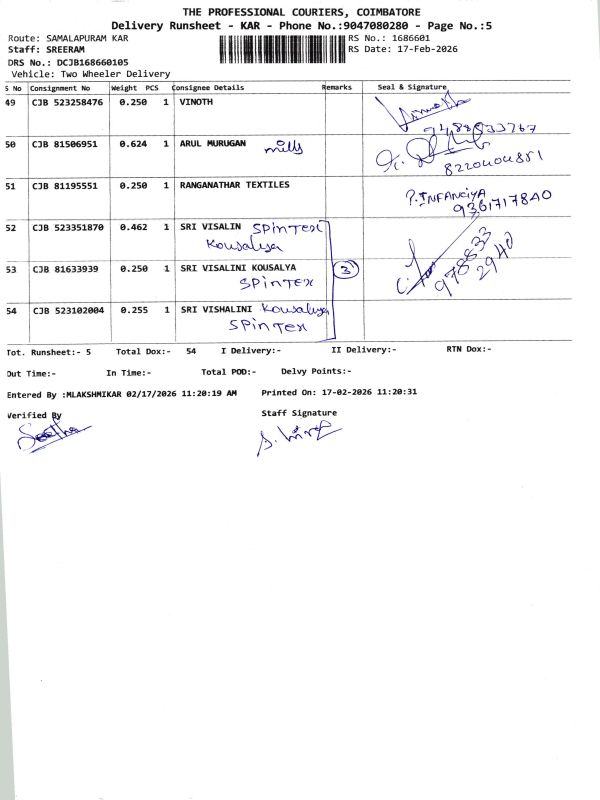 THE PROFESSIONAL COURIERS, COIMBATORE
Delivery Runsheet - KAR - Phone No.:9047080280 - Page No.:5
Route: SAMALAPURAM KAR
RS No.: 1686601
Staff: SREERAM
RS Date: 17-Feb-2026
DRS No.: DCJB168660105
Vehicle: Two Wheeler Delivery
S No Consignment No Weight PCS Consignee Details Remarks Seal & Signature
49 CJB 523258476 0.250 1 VINOTH
50 CJB 81506951 0.624 1 ARUL MURUGAN mills
8220404851
51 CJB 81195551 0.250 1 RANGANATHAR TEXTILES
P.INFANCIYA
9361717840
52 CJB 523351870 0.462 1 SRI VISALIN SPinTex
Kousalya
978833
2940
53 CJB 81633939 0.250 1 SRI VISALINI KOUSALYA 3
SPinTex
54 CJB 523102004 0.255 1 SRI VISHALINI Kousalya
SPinTex
Tot. Runsheet:- 5 Total Dox:- 54 I Delivery:- II Delivery:- RTN Dox:-
Out Time:- In Time:- Total POD:- Delvy Points:-
Entered By :MLAKSHMIKAR 02/17/2026 11:20:19 AM Printed On: 17-02-2026 11:20:31
Verified By Staff Signature